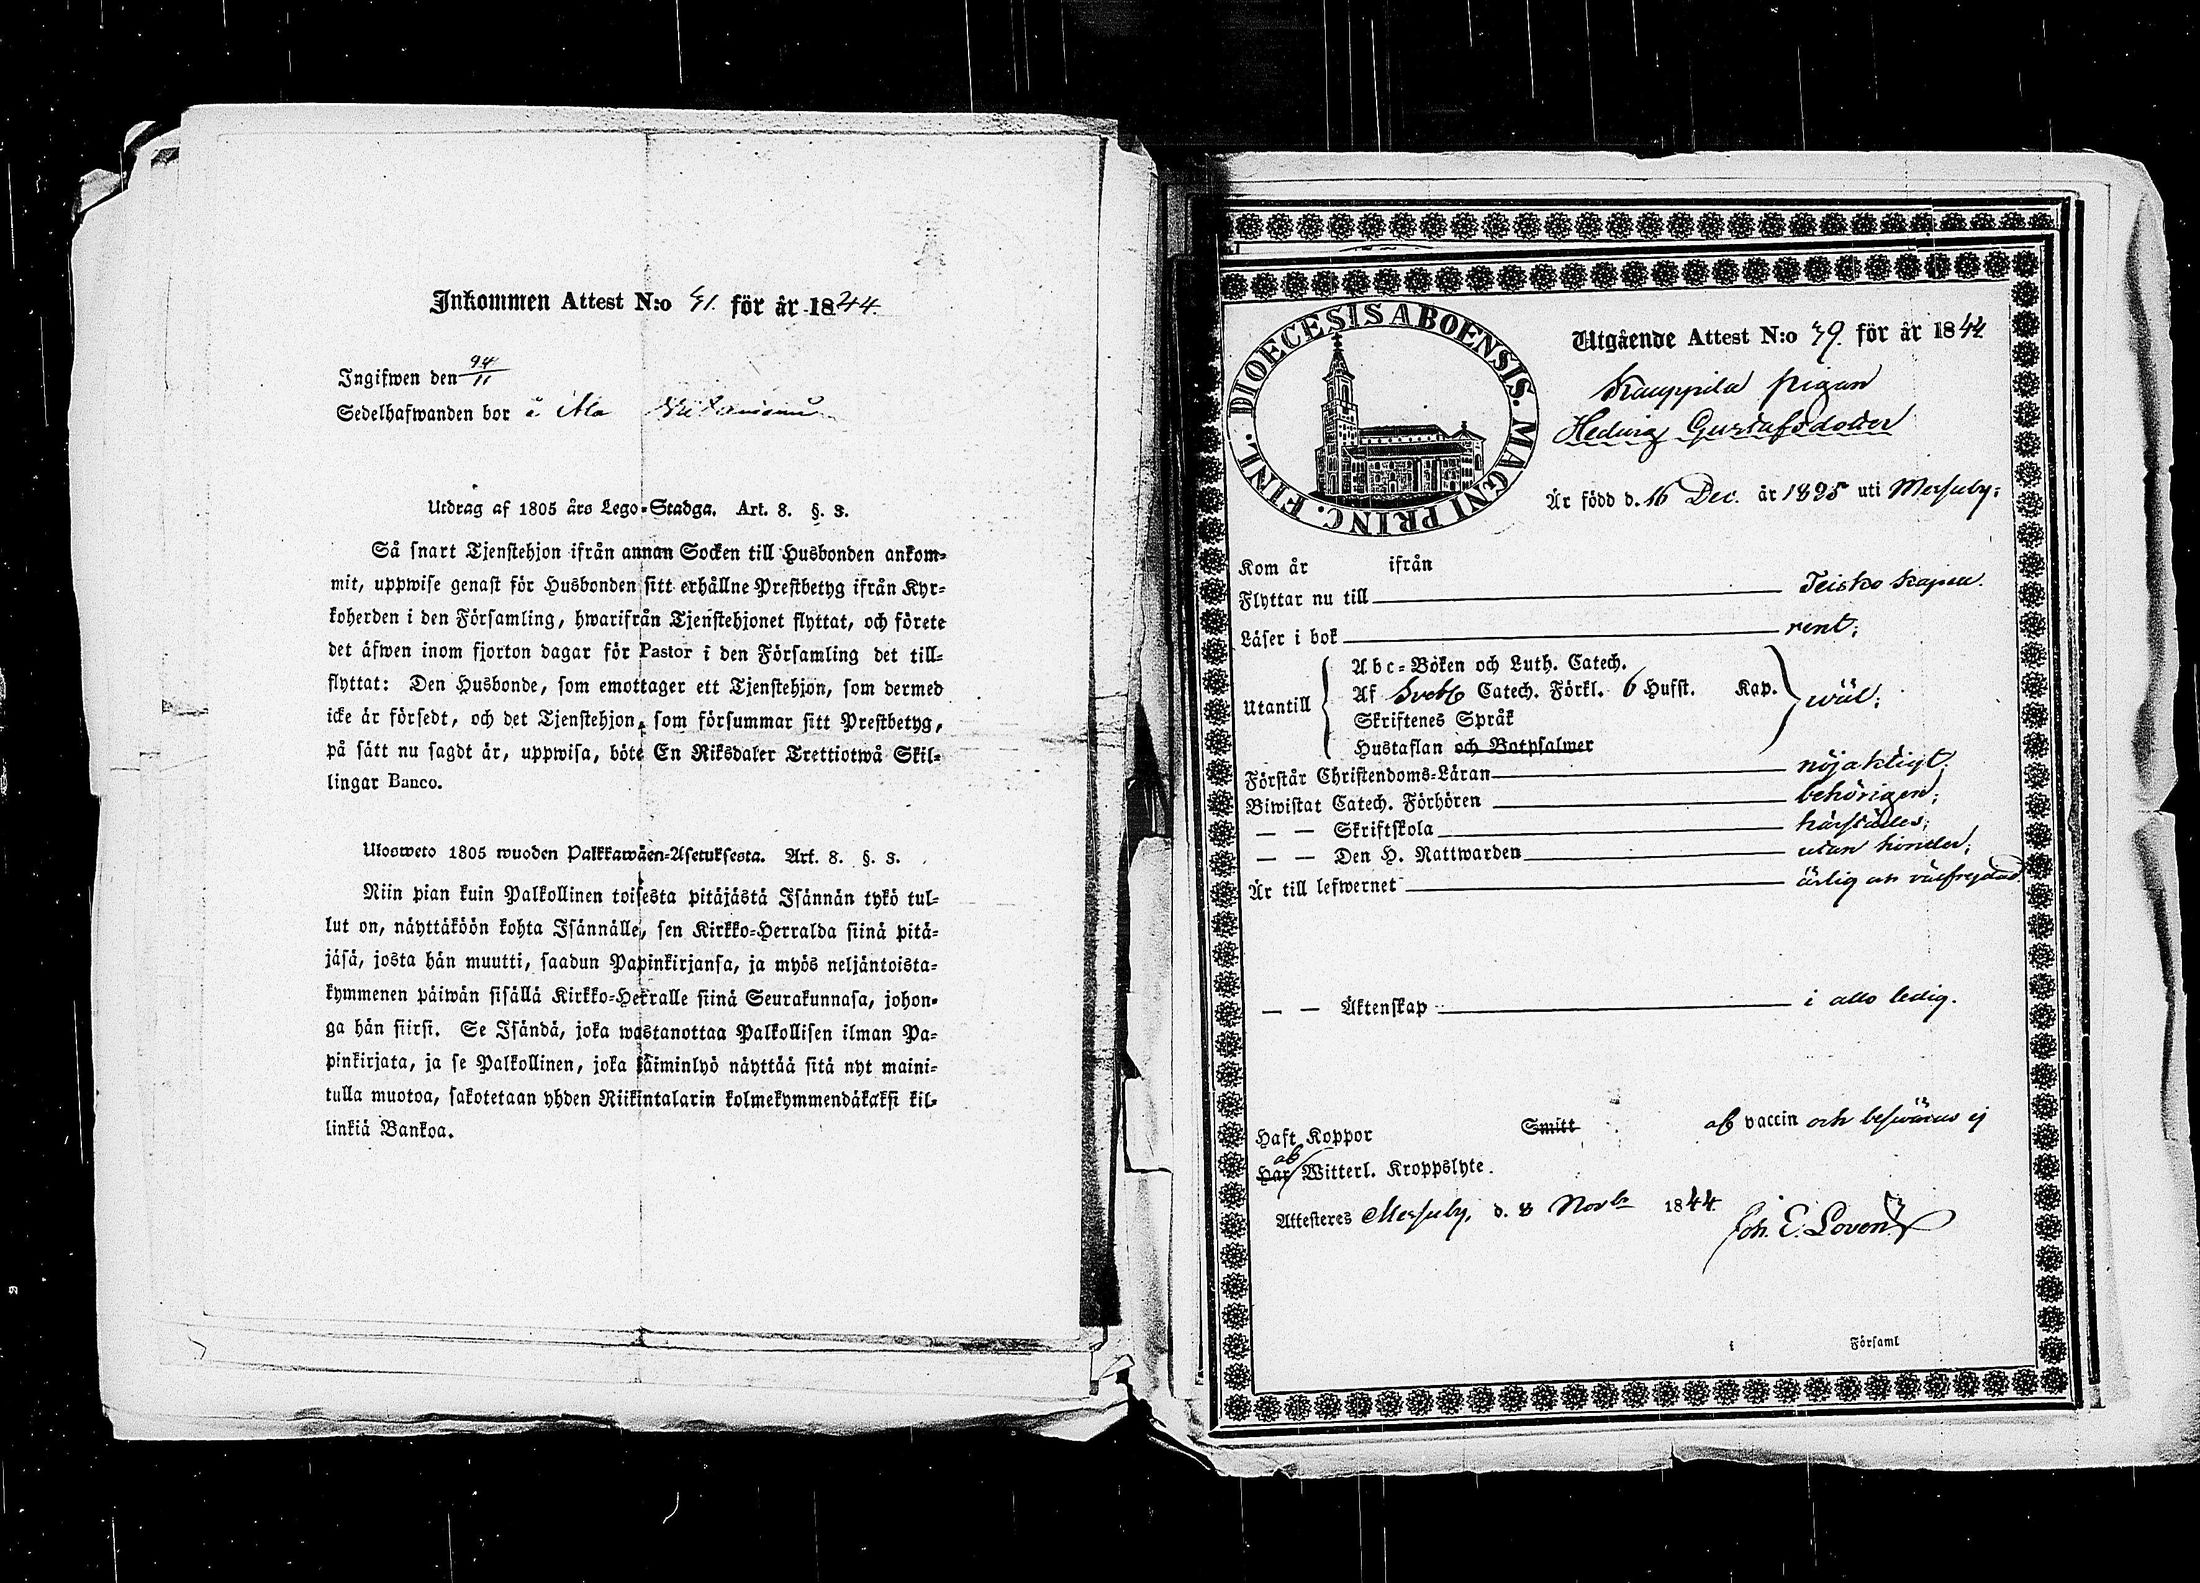 Inkommen Attest N:o 41. för år 1844.
Ingifwen den 24/11
Sedelhafwanden bor i Ala
Utdrag af 1805 års Lego-Stadga. Art. 8. §. 3.
Så snart Tjenstehjon ifrån annan Socken till Husbonden ankom-
mit, uppwise genast för Husbonden sitt erhållne Prestbetyg ifrån Kyr-
koherden i den Församling, hwarifrån Tjenstehjonet flyttat, och förete
det äfwen inom fjorton dagar för Pastor i den Församling det till-
flyttat: Den Husbonde, som emottager ett Tjenstehjon, som dermed
icke är försedt, och det Tjenstehjon, som försummar sitt Prestbetyg,
på sätt nu sagdt är, uppwisa, böte En Riksdaler Trettiotwå Skil-
lingar Banco.
Ulosweto 1805 wuoden Palkkawäen-Asetuksesta. Art. 8. §. 3.
Niin pian kuin Palkollinen toisesta pitäjästä Isännän tykö tul-
lut on, näyttäköön kohta Isännälle, sen Kirkko-Herralda siinä pitä-
jäsä, josta hän muutti, saadun Papinkirjansa, ja myös neljäntoista-
kymmenen päiwän sisällä Kirkko-Herralle siinä Seurakunnasa, johon-
ga hän siirsi. Se Isändä, joka wastanottaa Palkollisen ilman Pa-
pinkirjata, ja se Palkollinen, joka laiminlyö näyttää sitä nyt maini-
tulla muotoa, sakotetaan yhden Riikintalarin kolmekymmendäkaksi kil-
linkiä Bankoa.
DIOECESIS ABOENSIS. MAGNI PRINC. FINL.
Utgående Attest N:o 39. för år 1844
Kauppila pigan
Hedwig Gustafsdotter
Är född d. 16 Dec. år 1825 uti Messuby;
Kom år ifrån
Flyttar nu till Teisko kapell.
Läser i bok rent;
Utantill
Abc-Boken och Luth. Catech.
Af Svebb Catech. Förkl. 6 Hufst. Kap. wäl;
Skriftenes Språk
Hustaflan och Botpsalmer
Förstår Christendoms-Läran nöjaktigt;
Biwistat Catech. Förhören behörigen;
— — Skriftskola härstädes;
— — Den H. Nattwarden utan hinder;
Är till lefwernet ärlig och välfrejdad.
— — Äktenskap i allo ledig.
Haft Koppor Smitt af vaccin och beswäras ej
Har af Witterl. Kroppslyte.
Attesteres Messuby, d. 8 Novbr 1844. Joh. E. Loven
i Församl